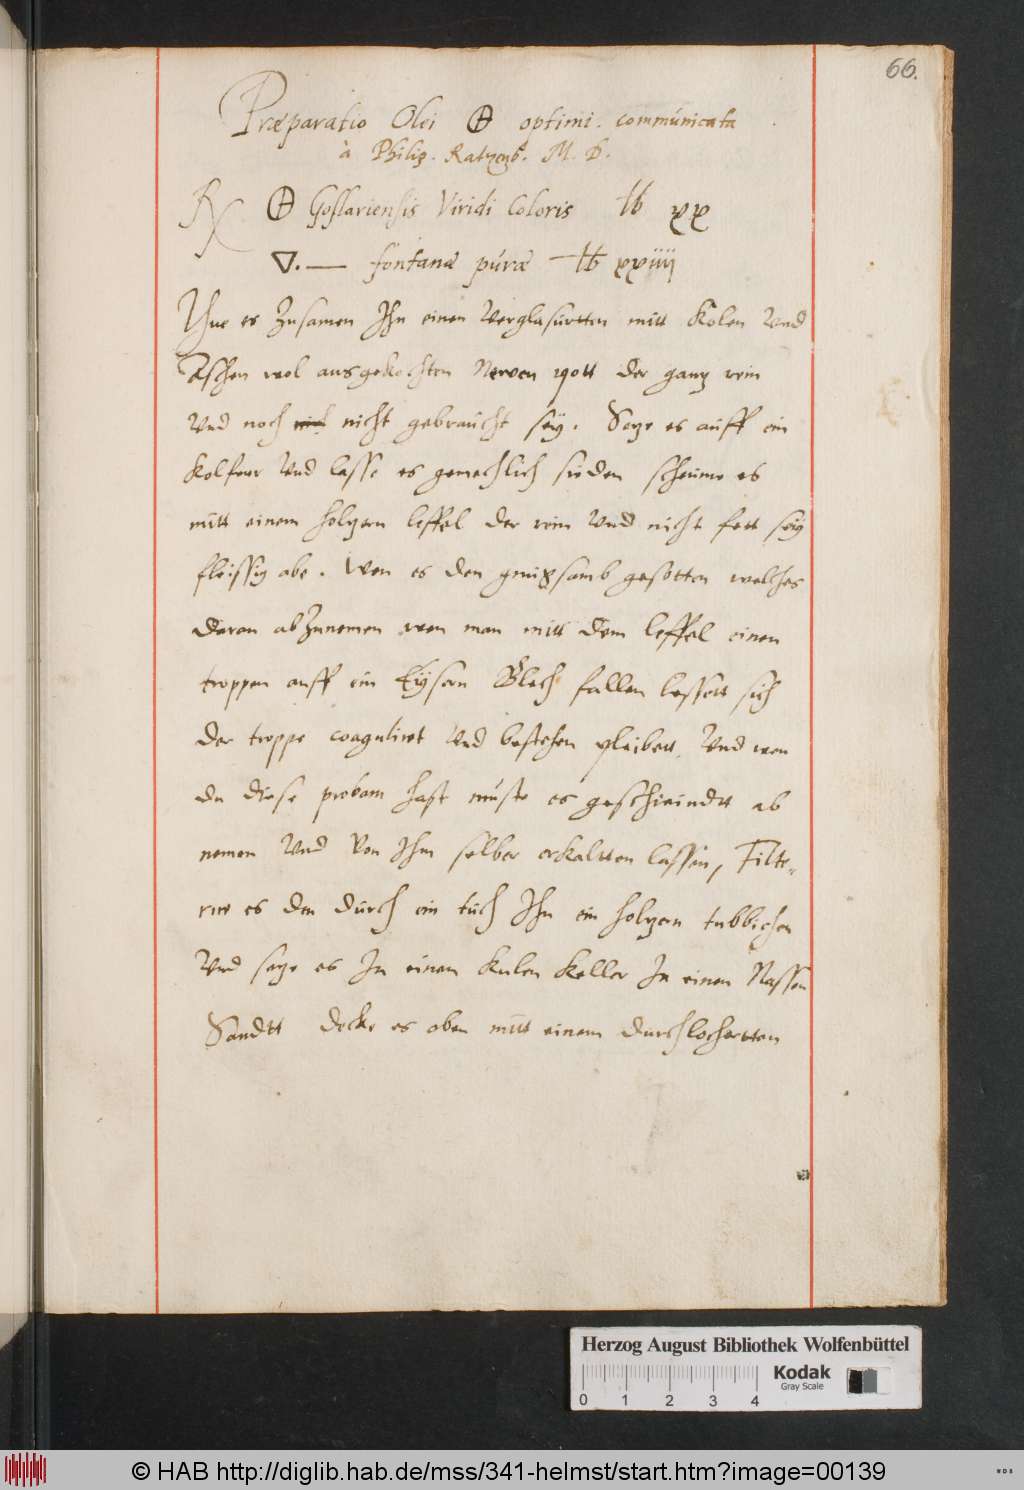 66.
Præparatio Olei 🜨 optimi. communicata
à Philip. Ratzenb. M. D.
℞ 🜨 Goslariensis Viridi Coloris ℔ xx
🜄. — fontanæ puræ ℔ xxiiij
Thue es Zusamen Ihn einen Verglasurtten mitt Kolen Vnd
Aschen wol ausgekochten Newen pott der gantz rein
Vnd noch nicht gebraucht sey. Setze es auff ein
Kolfeur Vnd lasse es gemechlich sieden scheume es
mitt einem holtzern leffel der rein Vnd nicht fett sey
fleissig abe. Wen es den gnugsamb gesotten welches
daran abZunemen wen man mitt dem leffel einen
troppen auff ein Eysern Blech fallen lessett sich
der troppe coaguliret Vnd bestehen pleibett. Vnd wen
du diese probam hast muste es geschwindt ab
nemen Vnd Von Ihm selber erkaltten lassen, Filte-
rire es den durch ein tuch Ihn ein holtzern tubbichen
Vnd setze es In einen kulen Keller In einen Nassen
Sandtt decke es oben mitt einem durchlochertten
Herzog August Bibliothek Wolfenbüttel
Kodak
Gray Scale
0 1 2 3 4
© HAB http://diglib.hab.de/mss/341-helmst/start.htm?image=00139